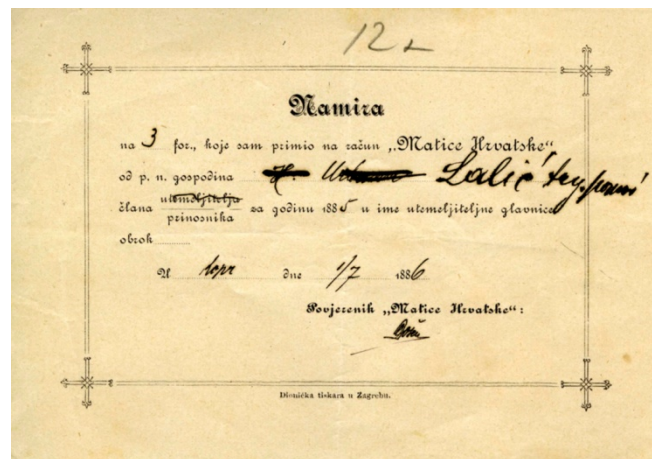 12
Namira
na 3 for., koje sam primio na račun „Matice Hrvatske“
od p. n. gospodina Lalić
člana utemeljitelja
prinosnika za godinu 1885 u ime utemeljiteljne glavnice
obrok
U dne 1/7 1886
Povjerenik „Matice Hrvatske“:
Dionička tiskara u Zagrebu.